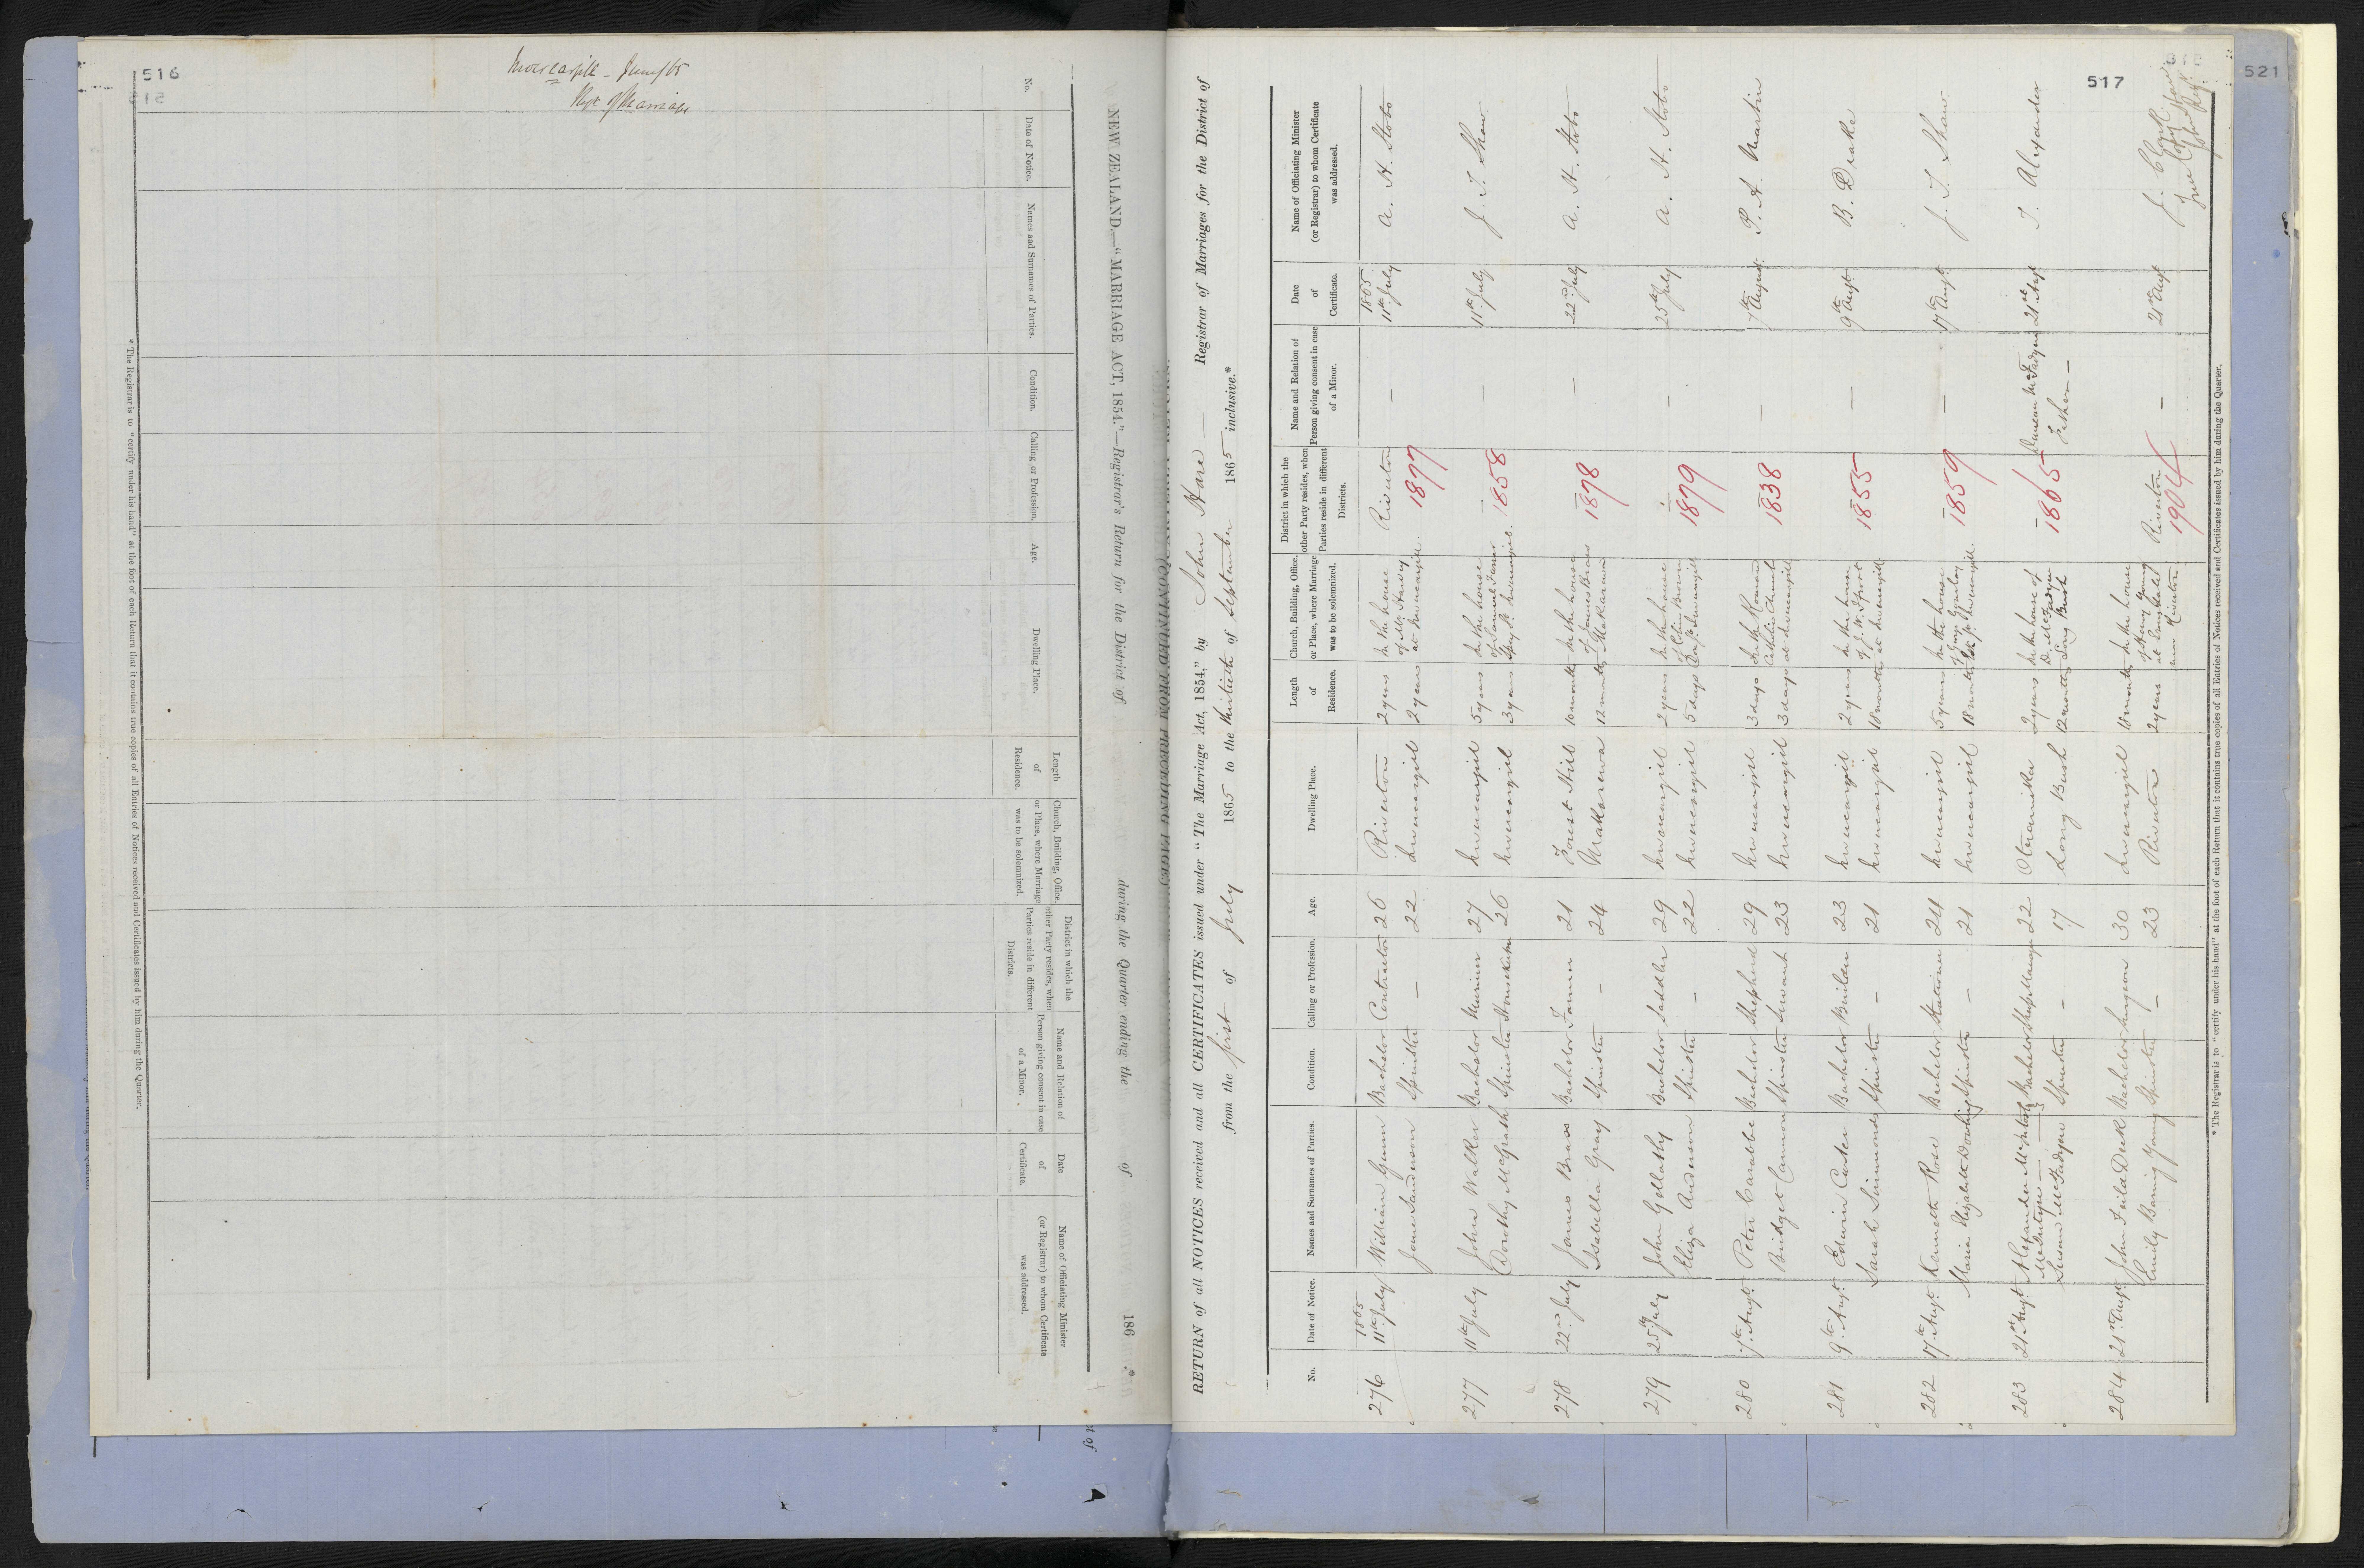 516
Invercargill - June/65
NEW ZEALAND.—"MARRIAGE ACT, 1854."—Registrar's Return for the District of
during the Quarter ending the
of
186 .*
No.
Date of Notice.
Names and Surnames of Parties.
Condition.
Calling or Profession.
Age.
Dwelling Place.
Length of Residence.
Church, Building, Office, or Place, where Marriage was to be solemnized.
District in which the other Party resides, when Parties reside in different Districts.
Name and Relation of Person giving consent in case of a Minor.
Date of Certificate.
Name of Officiating Minister (or Registrar) to whom Certificate was addressed.
* The Registrar is to "certify under his hand" at the foot of each Return that it contains true copies of all Entries of Notices received and Certificates issued by him during the Quarter.
517
521
RETURN of all NOTICES received and all CERTIFICATES issued under "The Marriage Act, 1854," by John Hare — Registrar of Marriages for the District of
from the first of July 1865 to the thirtieth of September 1865 inclusive.*
No.
Date of Notice.
Names and Surnames of Parties.
Condition.
Calling or Profession.
Age.
Dwelling Place.
Length of Residence.
Church, Building, Office, or Place, where Marriage was to be solemnized.
District in which the other Party resides, when Parties reside in different Districts.
Name and Relation of Person giving consent in case of a Minor.
Date of Certificate.
Name of Officiating Minister (or Registrar) to whom Certificate was addressed.
276 1865 11th July William Gunn Bachelor Contractor 26 Riverton 2 years In the house Riverton — 1865 11th July A. H. Stobo
Jane Sanderson Spinster — 22 Invercargill 2 years at Invercargill. 1877
277 11th July John Walker Bachelor Mariner 27 Invercargill 5 years In the house — — 11th July J. T. Shaw
Dorothy McGrath Spinster Housekeeper 26 Invercargill 3 years Spey St. Invercargill. 1858
278 22nd July James Brass Bachelor Farmer 21 Forest Hill 10 months In the house of James Brass — — 22nd July A. H. Stobo
Isabella Gray Spinster — 24 Makarewa 12 months Makarewa 1878
279 25th July John Gollathy Bachelor Saddler 29 Invercargill 2 years In the house — — 25th July A. H. Stobo
Eliza Anderson Spinster — 22 Invercargill 5 days Invercargill 1879
280 7th Augt. Peter Carabbe Bachelor Shepherd 29 Invercargill 3 days In the Roman Catholic Church — — 7th August P. A. Martin
Bridget Cannon Spinster Servant 23 Invercargill 3 days at Invercargill 1838
281 9th Augt. Edwin Carter Bachelor Builder 23 Invercargill 2 years In the house — — 9th Augt B. Drake
Sarah Simmonds Spinster — 21 Invercargill 18 months at Invercargill 1855
282 17th Augt. Kenneth Rose Bachelor Stationer 24 Invercargill 5 years In the house — — 17th Augt. J. T. Shaw
Maria Elizabeth Dowling Spinster — 21 Invercargill 18 months Invercargill. 1859
283 21st Augt. Alexander McIntosh Bachelor 22 Otaramika 2 years In the house of D. McFadyen — Duncan McFadyen 21st Augt T. Alexander
Susan McFadyen Spinster — 17 Long Bush 12 months Long Bush 1865 Father —
284 21st Augt. John Fuild Deck Bachelor Surgeon 30 Invercargill 18 months In the house of Henry Young Riverton — 21st Augt
Emily Baring Young Spinster — 23 Riverton 2 years near Riverton 1904
* The Registrar is to "certify under his hand" at the foot of each Return that it contains true copies of all Entries of Notices received and Certificates issued by him during the Quarter.